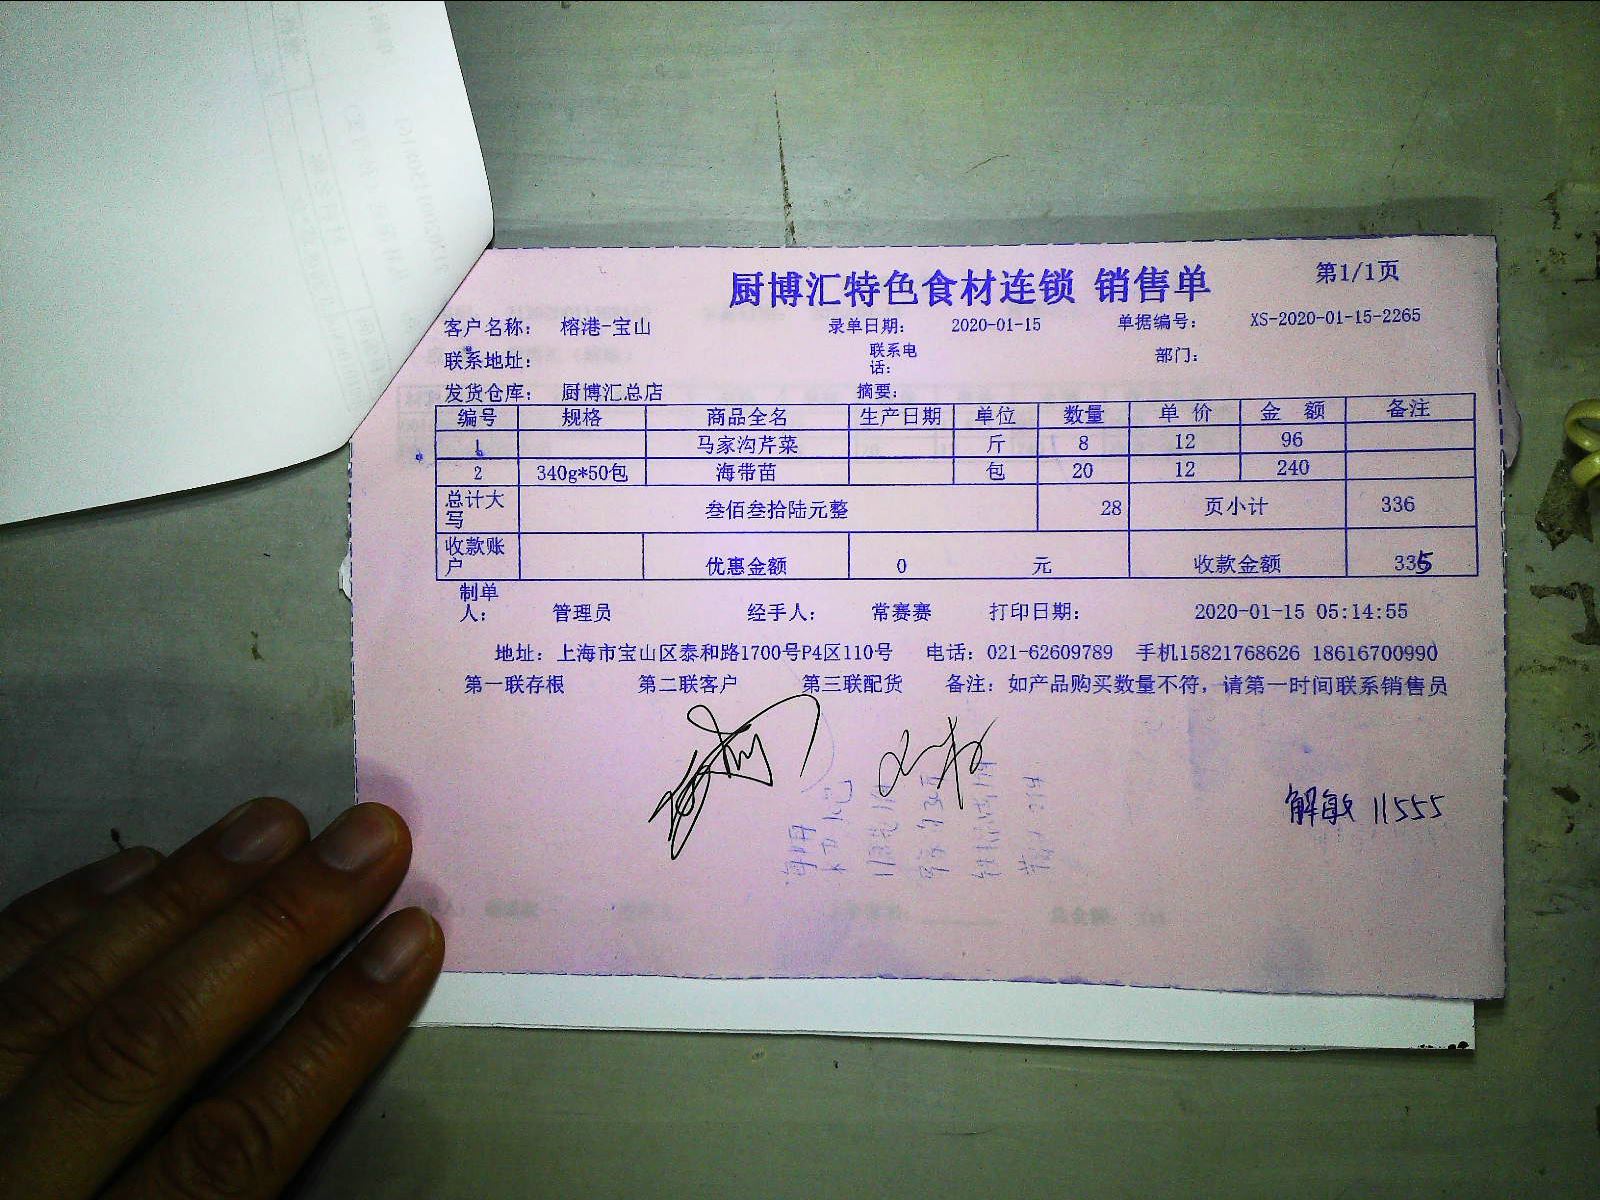 厨博汇特色食材连锁 销售单 第1/1页
客户名称： 榕港-宝山 录单日期： 2020-01-15 单据编号： XS-2020-01-15-2265
联系地址： 联系电话： 部门：
发货仓库： 厨博汇总店 摘要：
编号 规格 商品全名 生产日期 单位 数量 单 价 金 额 备注
1 马家沟芹菜 斤 8 12 96
2 340g*50包 海带苗 包 20 12 240
总计大写 叁佰叁拾陆元整 28 页小计 336
收款账户 优惠金额 0 元 收款金额 335
制单人： 管理员 经手人： 常赛赛 打印日期： 2020-01-15 05:14:55
地址：上海市宝山区泰和路1700号P4区110号 电话：021-62609789 手机15821768626 18616700990
第一联存根 第二联客户 第三联配货 备注：如产品购买数量不符，请第一时间联系销售员
解敏 11555